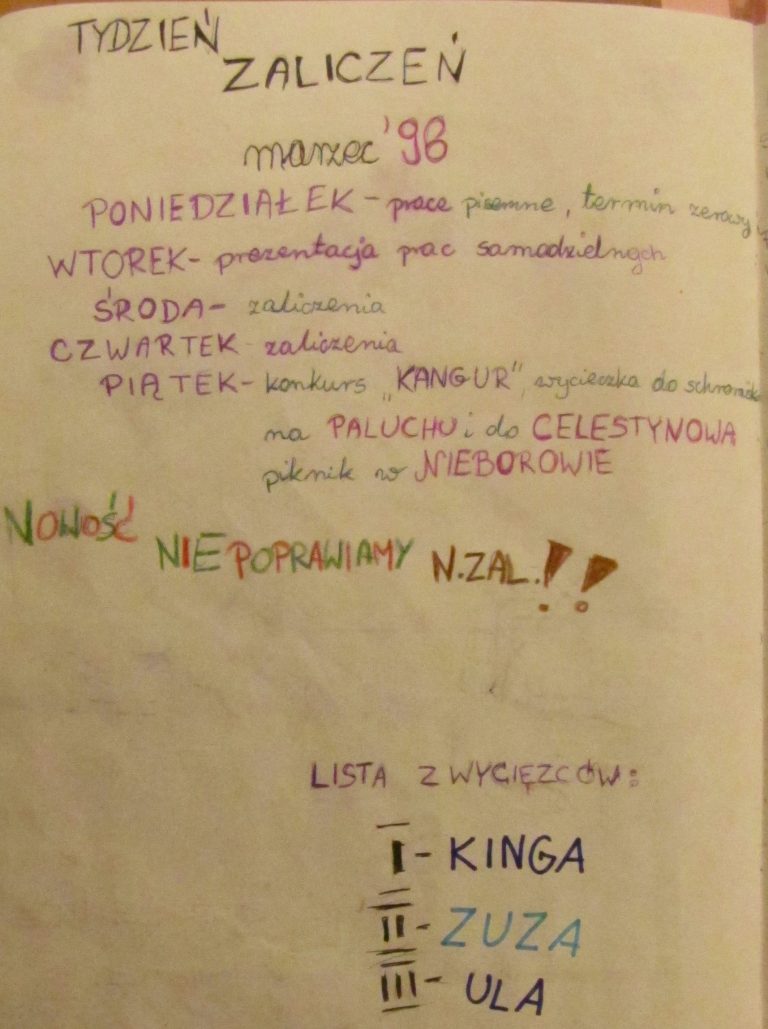 TYDZIEŃ
ZALICZEŃ
marzec '98
PONIEDZIAŁEK - prace pisemne, termin zerowy
WTOREK - prezentacja prac samodzielnych
ŚRODA - zaliczenia
CZWARTEK - zaliczenia
PIĄTEK - konkurs „KANGUR", wycieczka do
na PALUCHU i do CELESTYNOWA
piknik w NIEBOROWIE
NOWOŚĆ
NIE POPRAWIAMY N.ZAL.!!
LISTA ZWYCIĘZCÓW:
I - KINGA
II - ZUZA
III - ULA